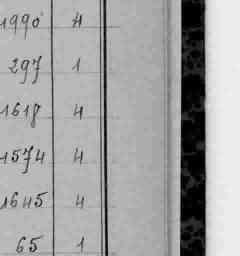 1990 4
297 1
1618 4
1574 4
1645 4
65 1